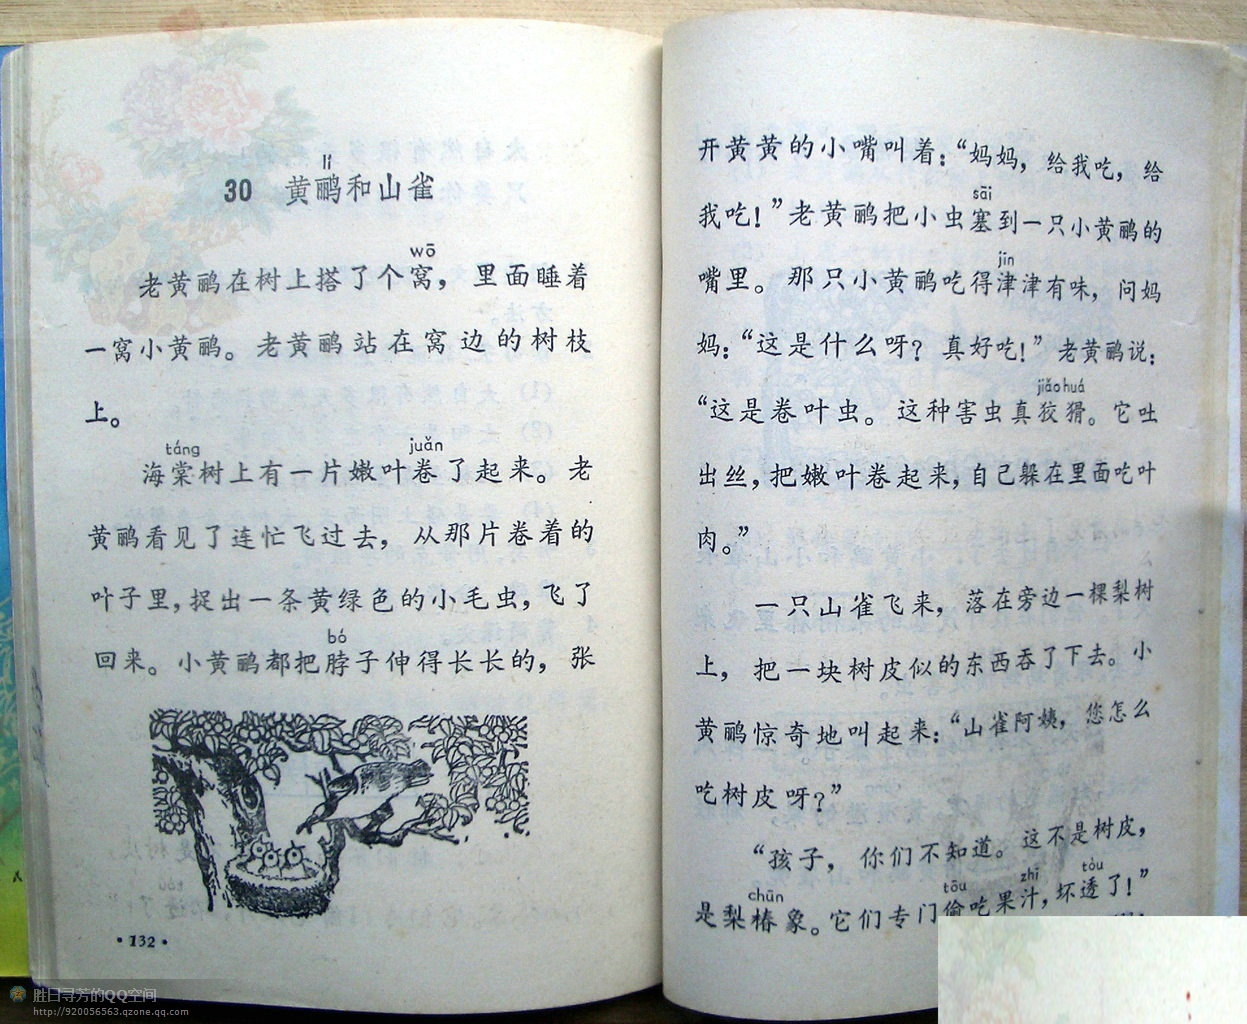 lí
30 黄鹂和山雀
wō
老黄鹂在树上搭了个窝，里面睡着
一窝小黄鹂。老黄鹂站在窝边的树枝
上。
táng juǎn
海棠树上有一片嫩叶卷了起来。老
黄鹂看见了连忙飞过去，从那片卷着的
叶子里，捉出一条黄绿色的小毛虫，飞了
bó
回来。小黄鹂都把脖子伸得长长的，张
·132·
开黄黄的小嘴叫着：“妈妈，给我吃，给
sāi
我吃！”老黄鹂把小虫塞到一只小黄鹂的
jīn
嘴里。那只小黄鹂吃得津津有味，问妈
妈：“这是什么呀？真好吃！”老黄鹂说：
jiǎo huá
“这是卷叶虫。这种害虫真狡猾。它吐
出丝，把嫩叶卷起来，自己躲在里面吃叶
肉。”
一只山雀飞来，落在旁边一棵梨树
上，把一块树皮似的东西吞了下去。小
黄鹂惊奇地叫起来：“山雀阿姨，您怎么
吃树皮呀？”
“孩子，你们不知道。这不是树皮，
chūn tōu zhī tòu
是梨椿象。它们专门偷吃果汁，坏透了！”
胜日寻芳的QQ空间
http://920056563.qzone.qq.com